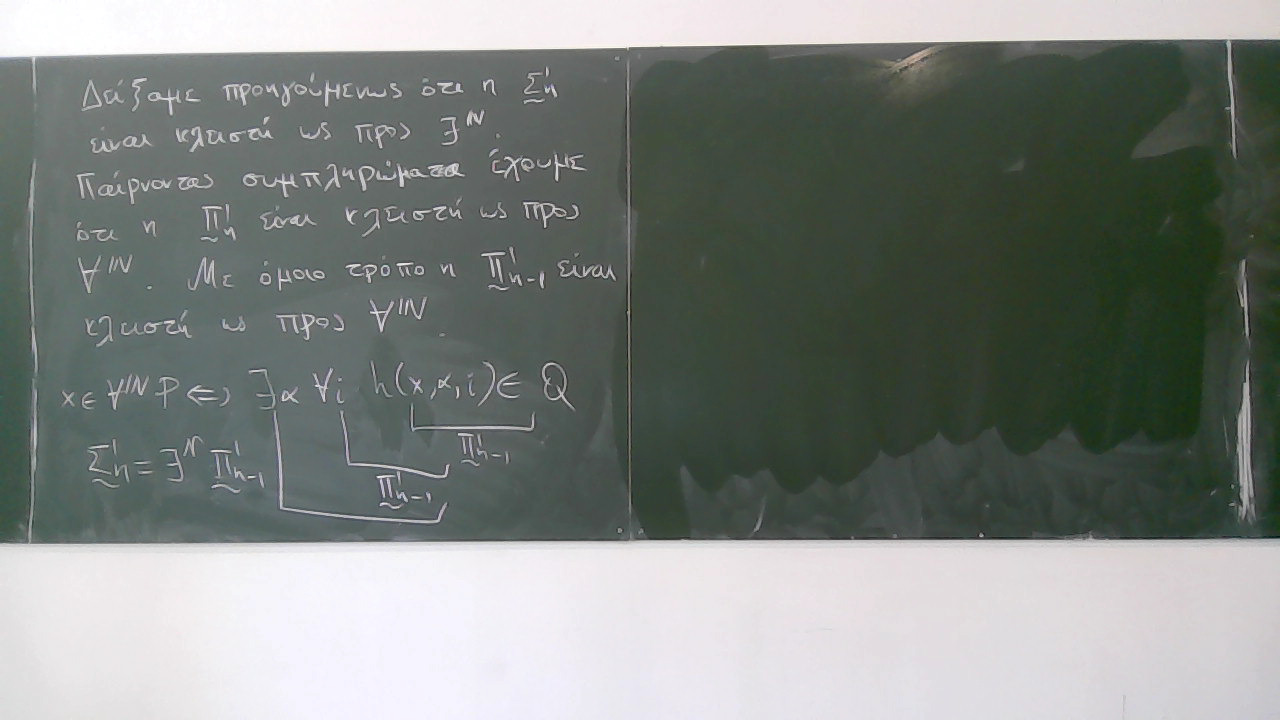 Δείξαμε προηγούμενως ότι η Σ¹ₙ
είναι κλειστή ως προς ∃ᴺ.
Παίρνοντας συμπληρώματα έχουμε
ότι η Π¹ₙ είναι κλειστή ως προς
∀ᴺ. Με όμοιο τρόπο η Π¹ₙ₋₁ είναι
κλειστή ως προς ∀ᴺ.
x ∈ ∀ᴺ P ⇔ ∃α ∀i h(x,α,i) ∈ Q
Π¹ₙ₋₁
Σ¹ₙ = ∃ᴺ Π¹ₙ₋₁
Π¹ₙ₋₁